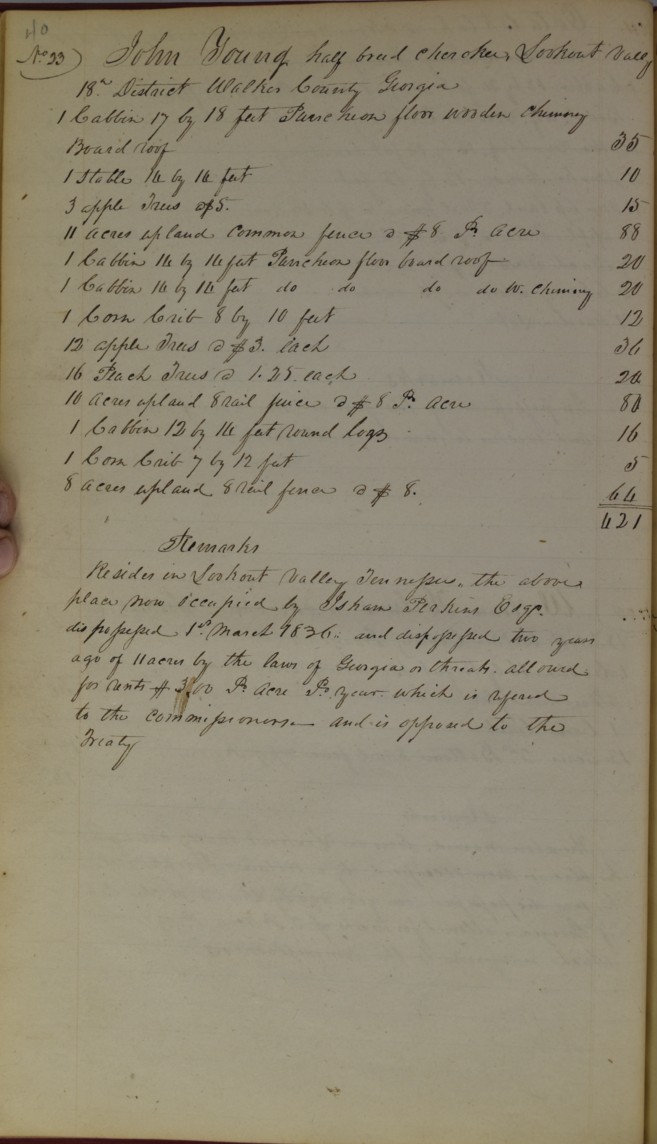 40
No 23) John Young half breed cherokee, Lookout Valley
18th District Walker County Georgia
1 Cabbin 17 by 18 feet Puncheon floor wooden chimney
Board roof 35
1 Stable 14 by 14 feet 10
3 apple Trees @ $5. 15
11 acres upland common fence @ $8 Pr acre 88
1 Cabbin 14 by 14 feet Puncheon floor board roof 20
1 Cabbin 14 by 14 feet do do do do W. chimney 20
1 Corn Crib 8 by 10 feet 12
12 apple Trees @ $3. each 36
16 Peach Trees @ 1.25. each 20
10 acres upland 8 rail fence @ $8 Pr acre 80
1 Cabbin 12 by 14 feet round logs 16
1 Corn Crib 7 by 12 feet 5
8 acres upland 8 rail fence @ $8. 64
421
Remarks
Resides in Lookout Valley Tennessee. the above
place now occupied by Isham Perkins Esqr.
dispossessed 1st March 1836. and dispossessed two years
ago of 11 acres by the laws of Georgia or threats. allowed
for rents $3.00 Pr Acre Pr year. which is refered
to the commissioners— and is opposed to the
Treaty